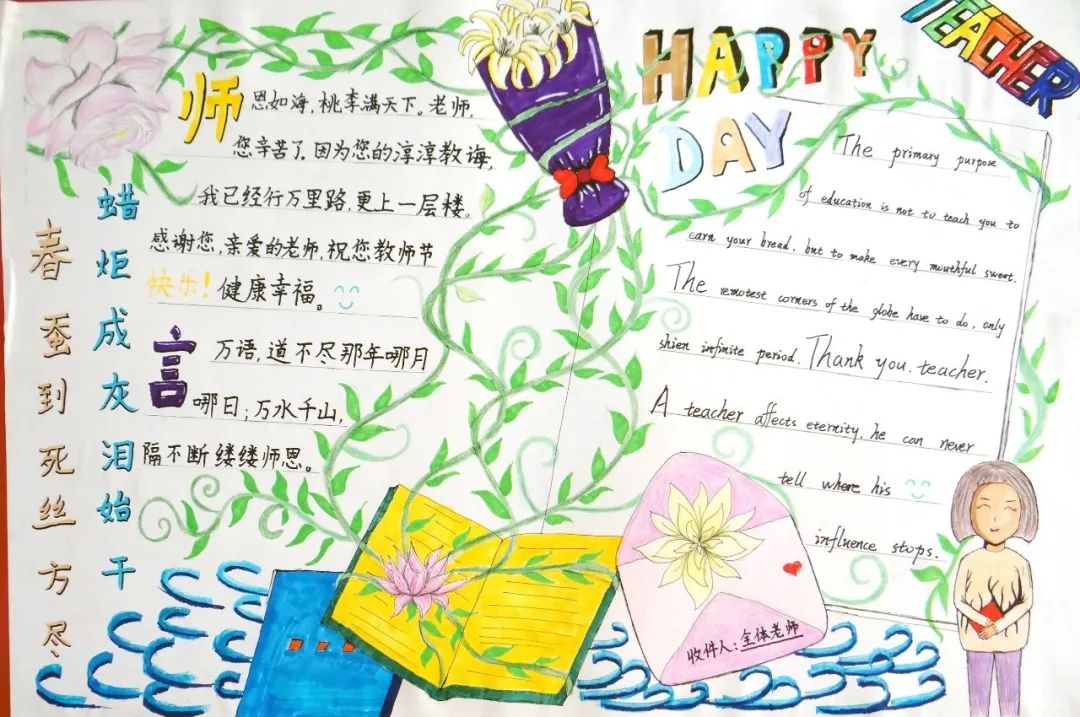 春蚕到死丝方尽
蜡炬成灰泪始干
师恩如海,桃李满天下。老师,
您辛苦了,因为您的淳淳教诲,
我已经行万里路,更上一层楼。
感谢您,亲爱的老师,祝您教师节
快乐!健康幸福。
言万语,道不尽那年哪月
哪日;万水千山,
隔不断缕缕师恩。
HAPPY
TEACHER
DAY
The primary purpose
of education is not to teach you to
earn your bread, but to make every mouthful sweet.
The remotest corners of the globe have to do, only
shien infinite period. Thank you. teacher.
A teacher affects eternity, he can never
tell where his
influence stops.
收件人:全体老师